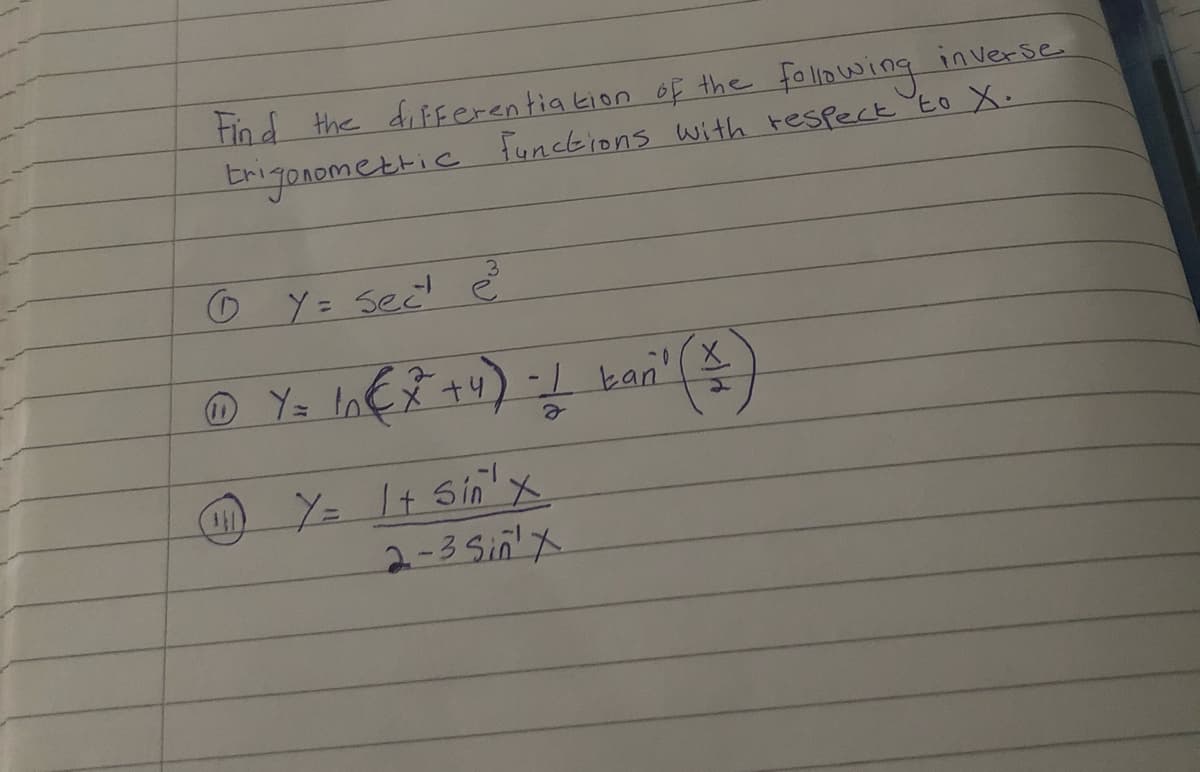 Find the differentiation of the following inverse
trigonometric functions with respect to X.
① Y = sec⁻¹ e³
⑪ Y = ln(x² + 4) - 1/2 tan⁻¹(x/2)
⑪⑪ Y = 1 + sin⁻¹ x / 2 - 3 sin⁻¹ x